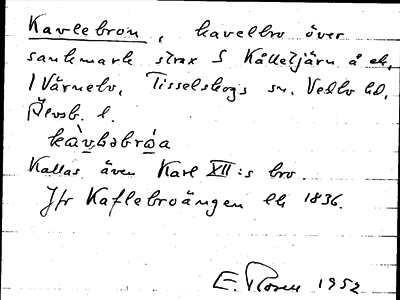 Kavlebron, kavelbro över
sankmark strax S Kålletjärn å ek.
1 Värnebo, Tisselskogs sn. Vedbo hd.
Älvsb. l.
kàvləbróa
Kallas även Karl XII:s bro
Jfr Kaflebroängen ek 1836.
E. Rosen 1952